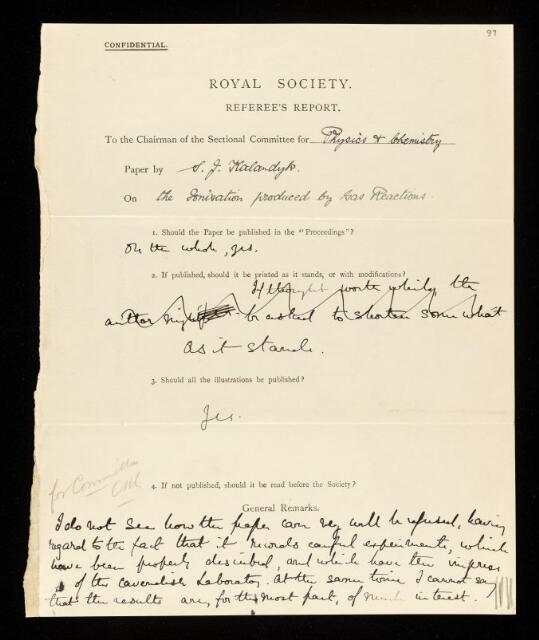 97
CONFIDENTIAL.
ROYAL SOCIETY.
REFEREE'S REPORT.
To the Chairman of the Sectional Committee for Physics & Chemistry
Paper by S. J. Kalandyk.
On the Ionisation produced by Gas Reactions.
1. Should the Paper be published in the "Proceedings"?
On the whole, yes.
2. If published, should it be printed as it stands, or with modifications?
If thought worth while, the
author might be asked to shorten somewhat
as it stands.
3. Should all the illustrations be published?
Yes.
for Committee
4. If not published, should it be read before the Society?
General Remarks.
I do not see how the paper can very well be refused, having
regard to the fact that it records careful experiments, which
have been properly described, and which have the impress
of the Cavendish Laboratory. At the same time I cannot say
that the results are, for the most part, of much interest.